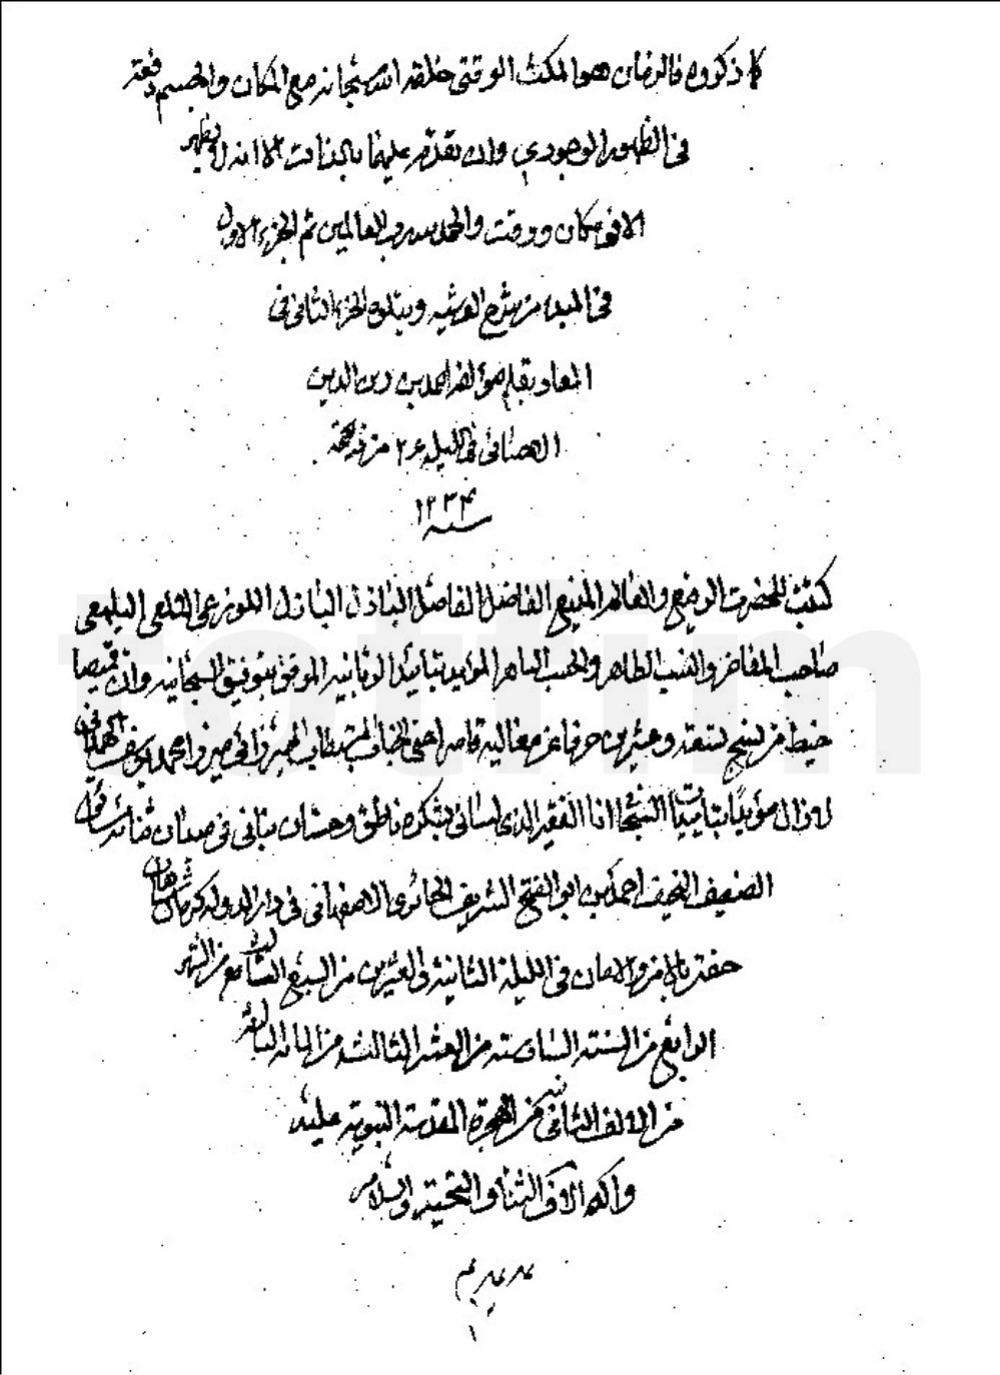 كما ذكروه فالزمان هو المكث الوقتي خلقه الله سبحانه مع المكان والجسم دفعة
في الظهور الوجودي وان تقدم عليهما بالذات الا انه لا يظهر
الا في مكان ووقت والحمد لله رب العالمين تم الجزء الاول
في المبدء من شرح العرشيه ويتلوه الجزء الثاني في
المعاد بقلم مؤلفه احمد بن زين الدين
الاحسائي في الليله ٢٤ من
سنه ١٢٣٤
كتبت للحضرت الرفيع والعالم المنيع الفاضل الفاصل الباذل البازل اللوزعي البلمعي
صاحب المفاخر والنسب الطاهر والحسب الباهر المؤيد بتأييد الربانيه الموفق بتوفيق السبحانيه وان قميصا
خيط من نسج تسعة وعشرين حرفا عن معاليه قاصر اعني الجناب المستطاب ميرزائي ميرزا محمد
لا زال مؤيدا انا الفقير الذي لساني بشكره ناطق
الضعيف النحيف احمد بن ابو الفتح الشريف الحائري الاصفهاني في دار الدوله كرمانشاهان
حفت بالامن والامان في الليلة الثانية والعشرين من السبع من الشهر
الرابع من السنته السادسته من العشر الثالثه من المائه
من الالف الثاني من الهجرة المقدسة النبويه عليه
واله الاف الثناء والتحيته والسلام
١